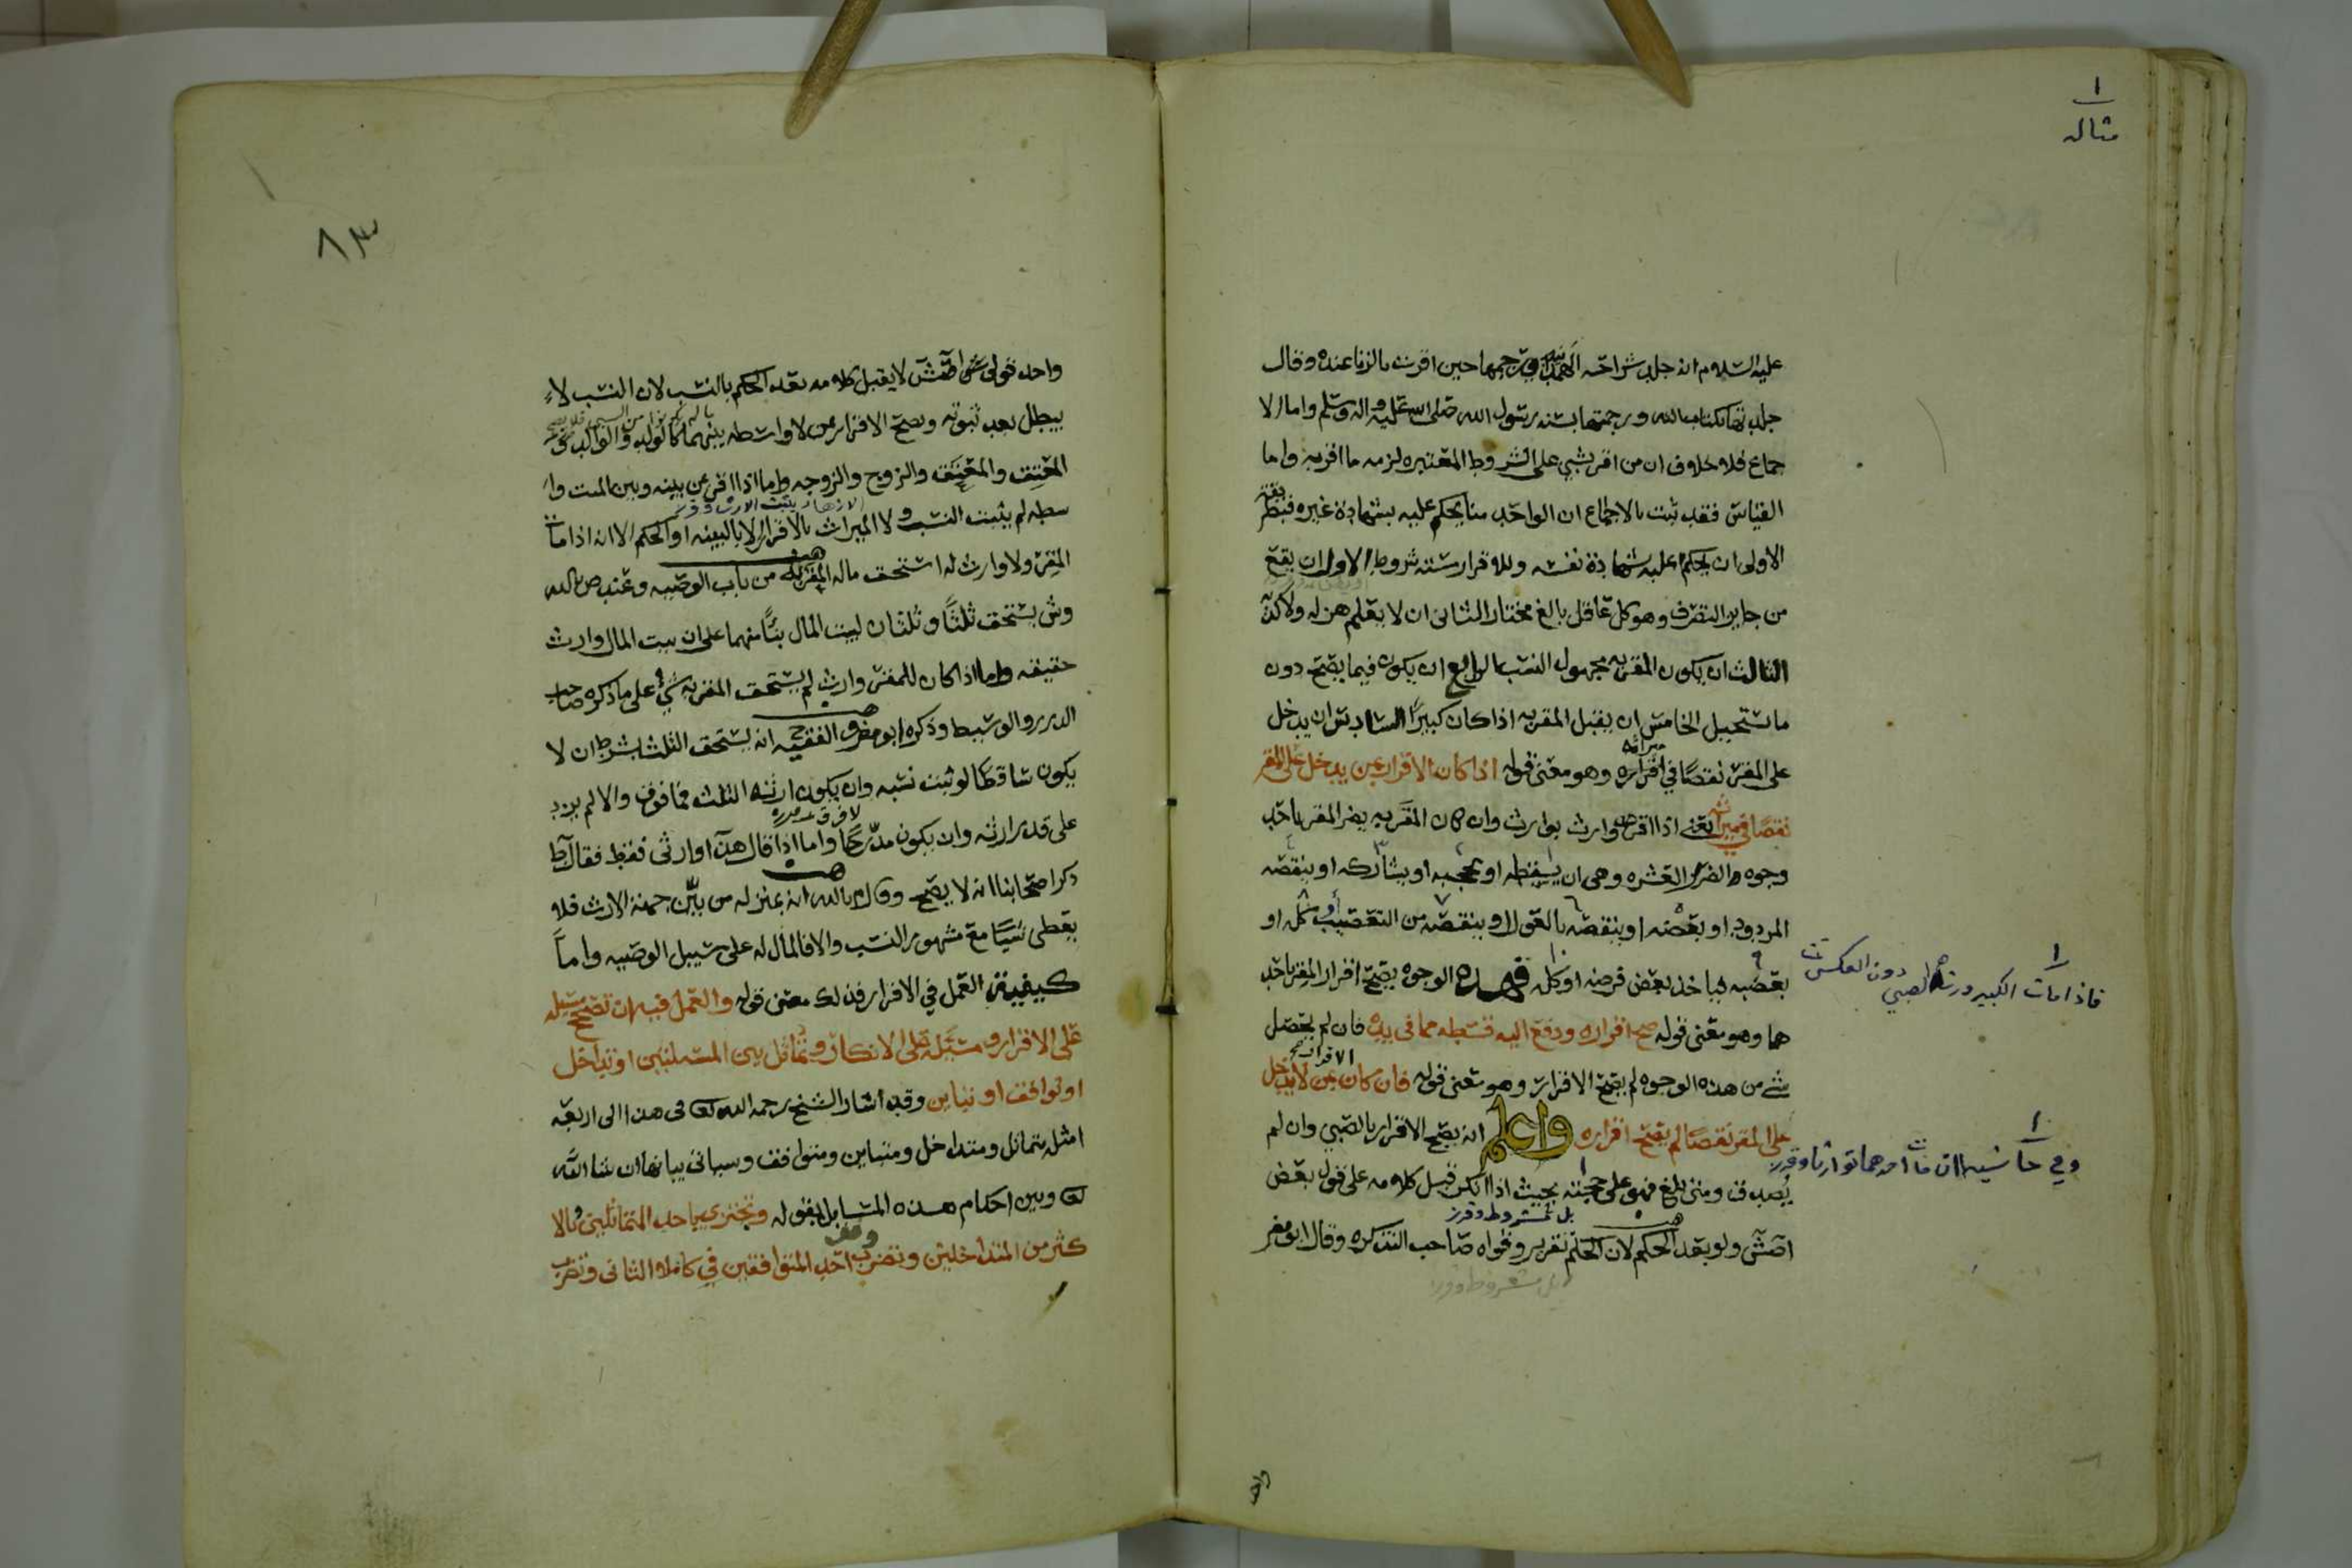 ١
مثاله
عليه السلام انه جلد شراحه الهمدانيه ورجمها حين اقرت بالزنا عنده وقال
جلدتها بكتاب الله ورجمتها بسنه رسول الله صلى الله عليه واله وسلم واما الا
جماع فلا خلاف ان من اقر بشي على الشروط المعتبره لزمه ما اقر به واما
القياس فقد ثبت بالاجماع ان الواحد منا يحكم عليه بشهادة غيره فبطريقة
الاولى ان يحكم عليه شهادة نفسه وللاقرار سته شروط الاول ان يقع
من جايز التصرف وهو كل عاقل بالغ مختار الثانى ان لا يعلم هزله ولا كذبه
الثالث ان يكون المقر به مجهول النسب الرابع ان يكون فيما يصح دون
ما يستحيل الخامس ان يقبل المقر به اذا كان كبيرًا السادس ان يدخل
على المقر نقصًا في اقراره وهو معنى قوله اذا كان الاقرار بمن يدخل على المقر
ميراثه
نقصًا في ميراثه يعني اذا اقر وارث بوارث وان كان المقر به يضر المقر باحد
وجوه الضرر العشره وهى ان يسقطه او يحجبه او يشاركه او ينقصه
المردود او بعضه او ينقصه بالعول او ينقصه من التعصيب كله او
بعضه او ياخذ بعض فرضه او كله فهذه الوجوه يصح اقرار المقر باحد
هما وهو معنى قوله صح اقراره ودفع اليه قسطه مما فى يده فان لم يحصل
شي من هذه الوجوه لم يصح الاقرار وهو معنى قوله فان كان بمن لا يدخل
الاقرار صح
على المقر نقصًا لم يصح اقراره واعلم انه يصح الاقرار بالصبي وان لم
يُصدق ومتى بلغ فهو على حجته بحيث اذا انكر قبل كلامه على قول بعض
بل مشروط وقرز
اصش ولو بعد الحكم لان الحكم تقرير وقواه صاحب التذكره وقال ابو مضر
بل مشروط وقرز
١
فاذا مات الكبير ورثه الصبي دون العكس
١
وفي حاشيه ان مات احدهما توارثا وقرز
واحد
٨٣
واحد قولى ش اطش لا يقبل كلامه بعد الحكم بالنسب لان النسب لا
يبطل بعد ثبوته ويصح الاقرار بمن لا واسطه بينهما كالولد والوالد و
المعتِق والمعتَق والزوج والزوجه واما اذا اقر بمن بينه وبين الميت وا
سطه لم يثبت النسب ولا الميراث بالاقرار الا بالبينه او الحكم الا انه اذا مات
المقر ولا وارث له استحق ماله المقر به من باب الوصيه وعند ص بالله
وش يستحق ثلثًا وثلثان لبيت المال بنًا منهما على ان بيت المال وارث
حقيقه واما اذا كان للمقر وارث لم يستحق المقر به شي على ما ذكره صاحب
الدرر والوسيط وذكره ابو مضر والفقيه ح انه يستحق الثلث بشرط ان لا
يكون ساقطًا لو ثبت نسبه وان يكون ارثه الثلث فما فوق والا لم يزد
على قدر ارثه وان يكون مدّرجًا واما اذا قال هذا وارثى فقط فقال ط
ذكر اصحابنا انه لا يصح وقال م بالله انه بمنزله من بيّن جهة الارث فلا
يعطى شيئًا مع مشهور النسب والا فالمال له على سبيل الوصيه واما
كيفية العمل في الاقرار فذلك معنى قوله والعمل فيه ان تصحح مسئله
على الاقرار ومسئله على الانكار وتماثل بين المسئلتين او تداخل
او توافق او تباين وقد اشار الشيخ رحمه الله تعا فى هذا الى اربعه
امثله متماثل ومتداخل ومتباين ومتوافق وسياتى بيانها ان شا الله
تعا وبين احكام هذه المسايل بقوله وتجتزى باحد المتماثلين وبالا
كثر من المتداخلين وتضرب احد المتوافقين في كامله الثانى وتضرب